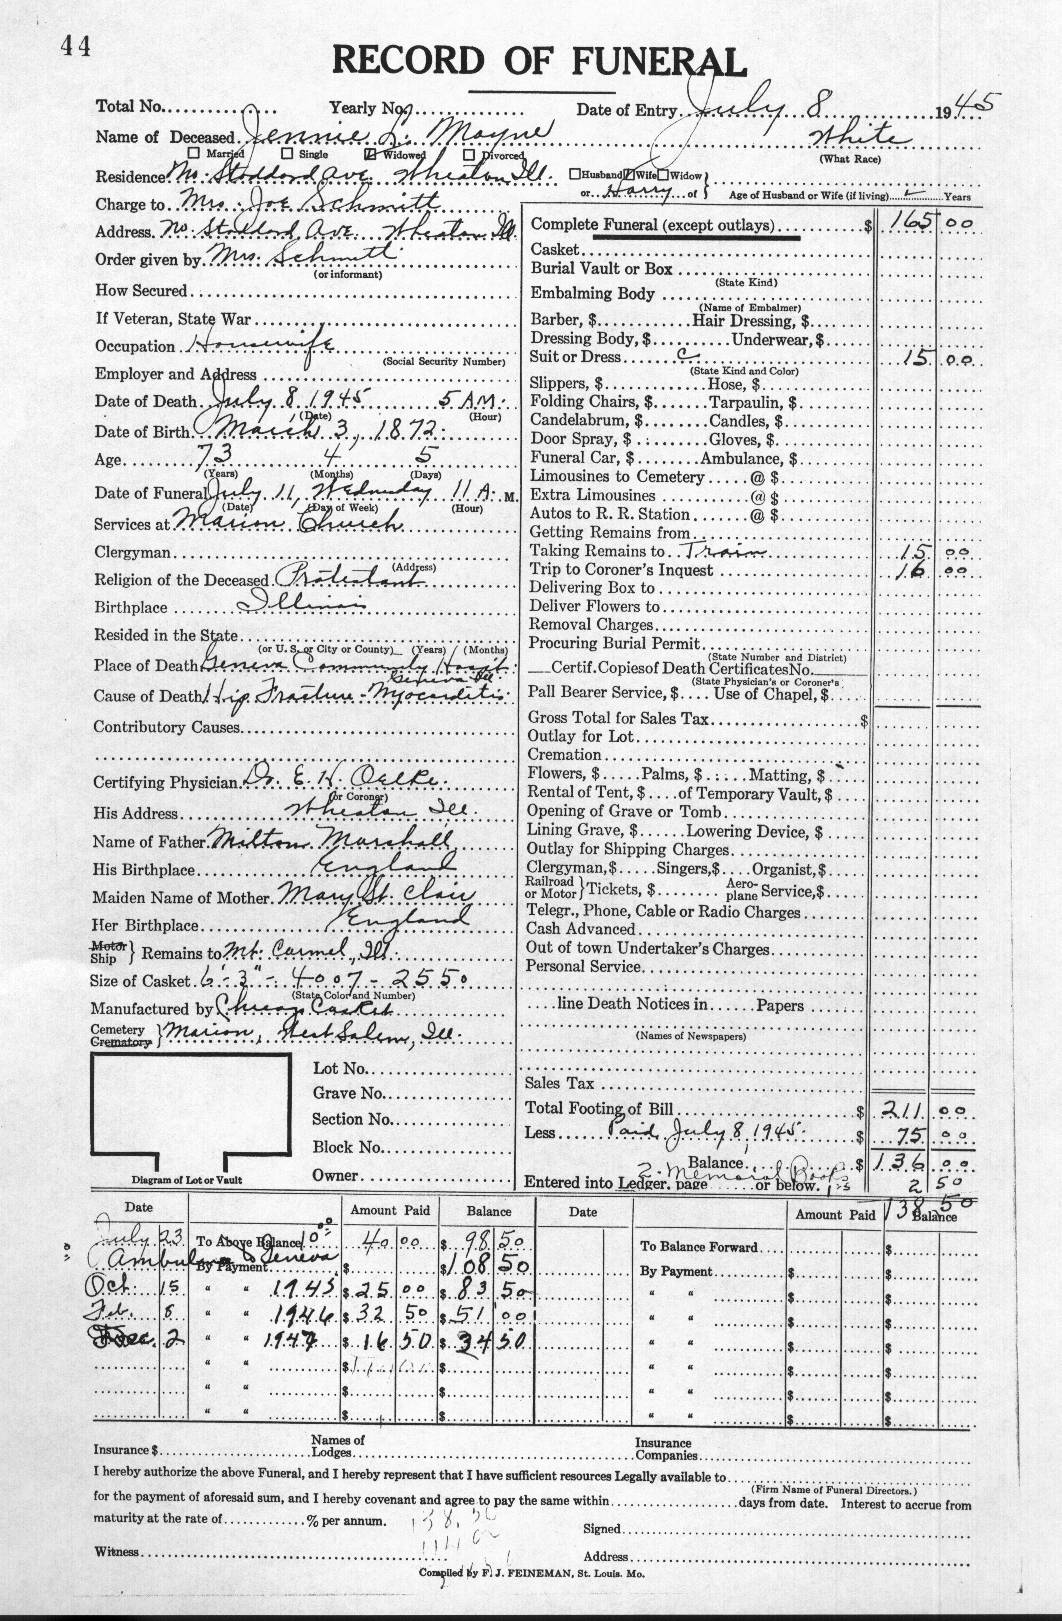 44
RECORD OF FUNERAL
Total No. Yearly No. Date of Entry July 8 1945
Name of Deceased Jennie J. Mayne White
Married Single Widowed Divorced (What Race)
Residence No. Stoddord Ave. Wheaton Ill. Husband Wife Widow
or Harry of Age of Husband or Wife (if living) Years
Charge to Mrs. Joe Schmitt
Address. No. Stoddord Ave. Wheaton Ill.
Order given by Mrs. Schmitt
(or informant)
How Secured
If Veteran, State War
Occupation Housewife
(Social Security Number)
Employer and Address
Date of Death July 8 1945 5 A.M.
(Date) (Hour)
Date of Birth March 3, 1872
Age 73 4 5
(Years) (Months) (Days)
Date of Funeral July 11, Wednesday 11 A. M.
(Date) (Day of Week) (Hour)
Services at Marion Church
Clergyman
(Address)
Religion of the Deceased Protestant
Birthplace Illinois
Resided in the State
(or U. S. or City or County) (Years) (Months)
Place of Death Geneva Community Hospit
Geneva Ill
Cause of Death Hip Fracture - Myocarditis
Contributory Causes
Certifying Physician Dr. E. H. Oelke.
(or Coroner)
His Address Wheaton Ill.
Name of Father Milton Marshall
His Birthplace England
Maiden Name of Mother Mary St. Clair
Her Birthplace England
Motor
Ship } Remains to Mt. Carmel, Ill.
Size of Casket 6'-3" - 4007 - 2550
(State Color and Number)
Manufactured by Chicago Casket
Cemetery
Crematory } Marion, West Salem, Ill.
Lot No.
Grave No.
Section No.
Block No.
Owner
Diagram of Lot or Vault
Complete Funeral (except outlays) $ 165 00
Casket
Burial Vault or Box
(State Kind)
Embalming Body
(Name of Embalmer)
Barber, $ Hair Dressing, $
Dressing Body, $ Underwear, $
Suit or Dress C 15 00
(State Kind and Color)
Slippers, $ Hose, $
Folding Chairs, $ Tarpaulin, $
Candelabrum, $ Candles, $
Door Spray, $ Gloves, $
Funeral Car, $ Ambulance, $
Limousines to Cemetery @ $
Extra Limousines @ $
Autos to R. R. Station @ $
Getting Remains from
Taking Remains to Train 15 00
Trip to Coroner's Inquest 16 00
Delivering Box to
Deliver Flowers to
Removal Charges
Procuring Burial Permit
(State Number and District)
Certif. Copies of Death Certificates No.
(State Physician's or Coroner's
Pall Bearer Service, $ Use of Chapel, $
Gross Total for Sales Tax $
Outlay for Lot
Cremation
Flowers, $ Palms, $ Matting, $
Rental of Tent, $ of Temporary Vault, $
Opening of Grave or Tomb
Lining Grave, $ Lowering Device, $
Outlay for Shipping Charges
Clergyman, $ Singers, $ Organist, $
Railroad
or Motor } Tickets, $ Aero-
plane Service, $
Telegr., Phone, Cable or Radio Charges
Cash Advanced
Out of town Undertaker's Charges
Personal Service
line Death Notices in Papers
(Names of Newspapers)
Sales Tax
Total Footing of Bill $ 211 00
Less Paid July 8, 1945 $ 75 00
Balance $ 136 00
2 Memorial Books
Entered into Ledger. page or below. 2 50
138 50
Date Amount Paid Balance Date Amount Paid Balance
July 23 To Above Balance 40 00 $ 98 50 To Balance Forward $
10 00
Ambulance Geneva By Payment $ $ 108 50 By Payment $ $
Oct. 15 " " 1945 $ 25 00 $ 83 50 " " $ $
Feb. 8 " " 1946 $ 32 50 $ 51 00 " " $ $
Dec. 2 " " 1947 $ 16 50 $ 34 50 " " $ $
" " $ $ " " $ $
" " $ $ " " $ $
" " $ $ " " $ $
Insurance $ Names of
Lodges Insurance
Companies
I hereby authorize the above Funeral, and I hereby represent that I have sufficient resources Legally available to
(Firm Name of Funeral Directors.)
for the payment of aforesaid sum, and I hereby covenant and agree to pay the same within days from date. Interest to accrue from
maturity at the rate of % per annum. 138.50
Signed
Witness
Address
Compiled by F. J. FEINEMAN, St. Louis. Mo.